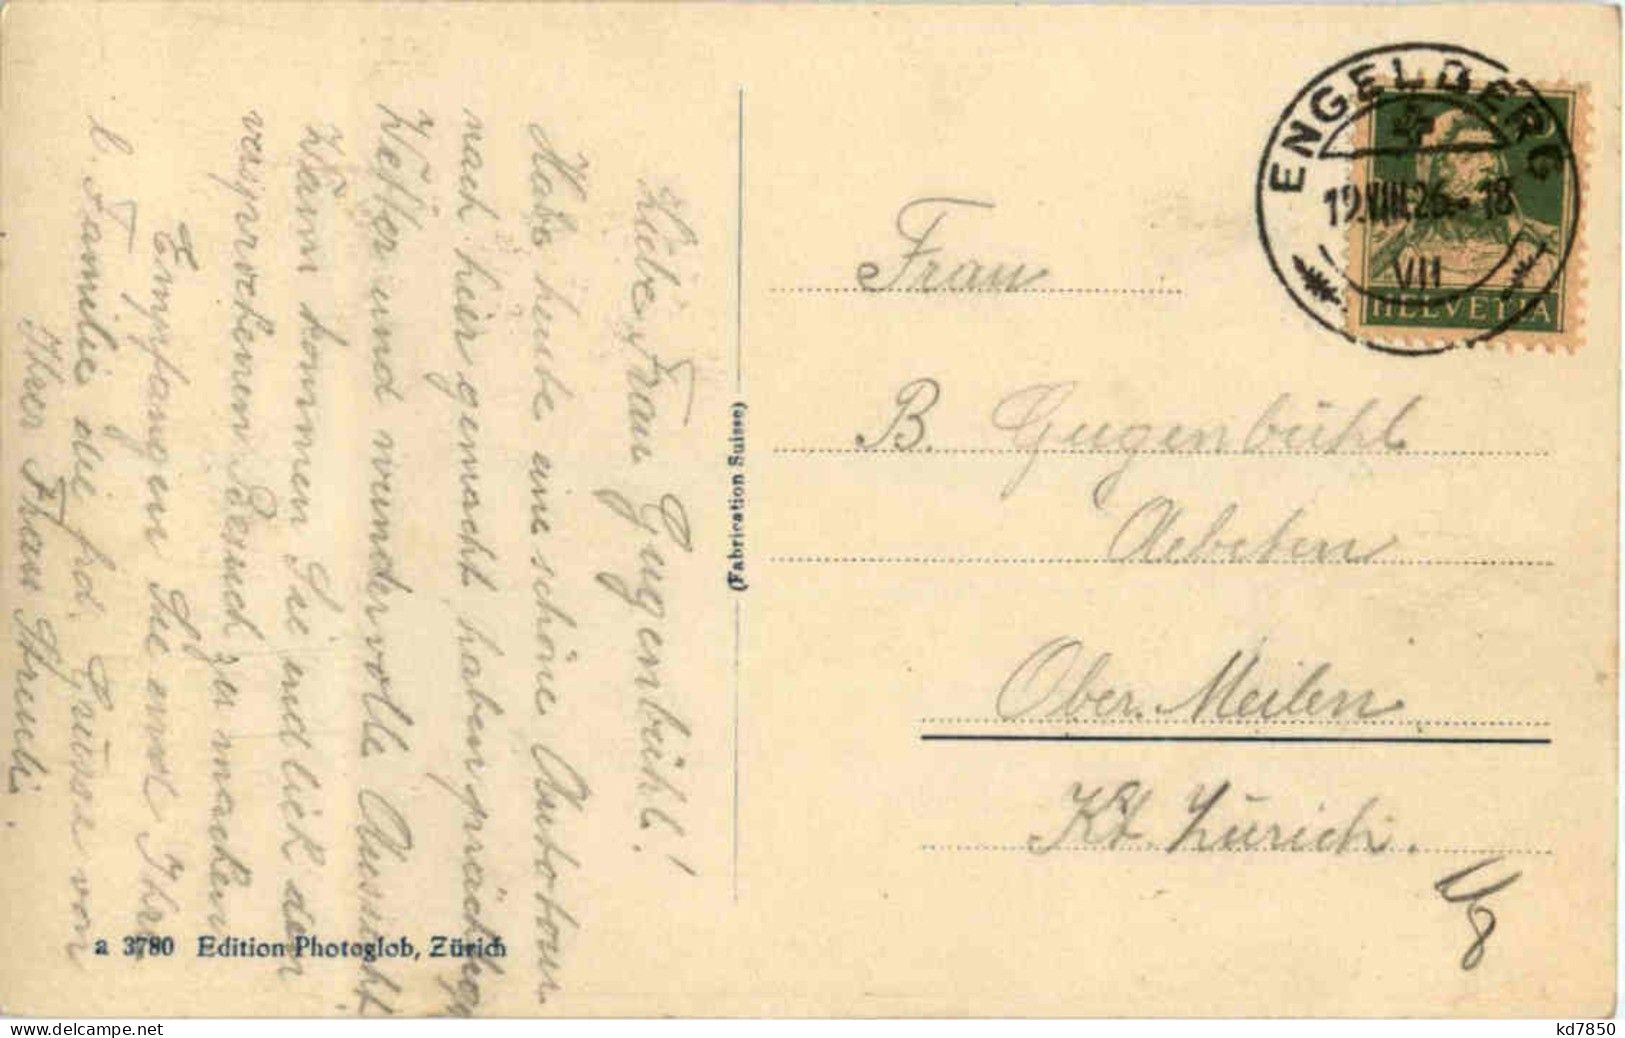 Liebe Frau Gugenbühl!
Habe heute eine schöne Autotour
nach hier gemacht, haben prächtiges
Wetter und wundervolle Aussicht
Wann kommen Sie endlich den
versprochenen Besuch zu machen
Empfangen Sie und Ihre
l. Familie die frd. Grüsse von
Ihrer Frau
a 3780 Edition Photoglob, Zürich
(Fabrication Suisse)
ENGELBERG
19.VIII.26.-18
VII
HELVETIA
Frau
B. Gugenbühl
Aebeten
Ober. Meilen
Kt. Zürich.
www.delcampe.net
kd7850